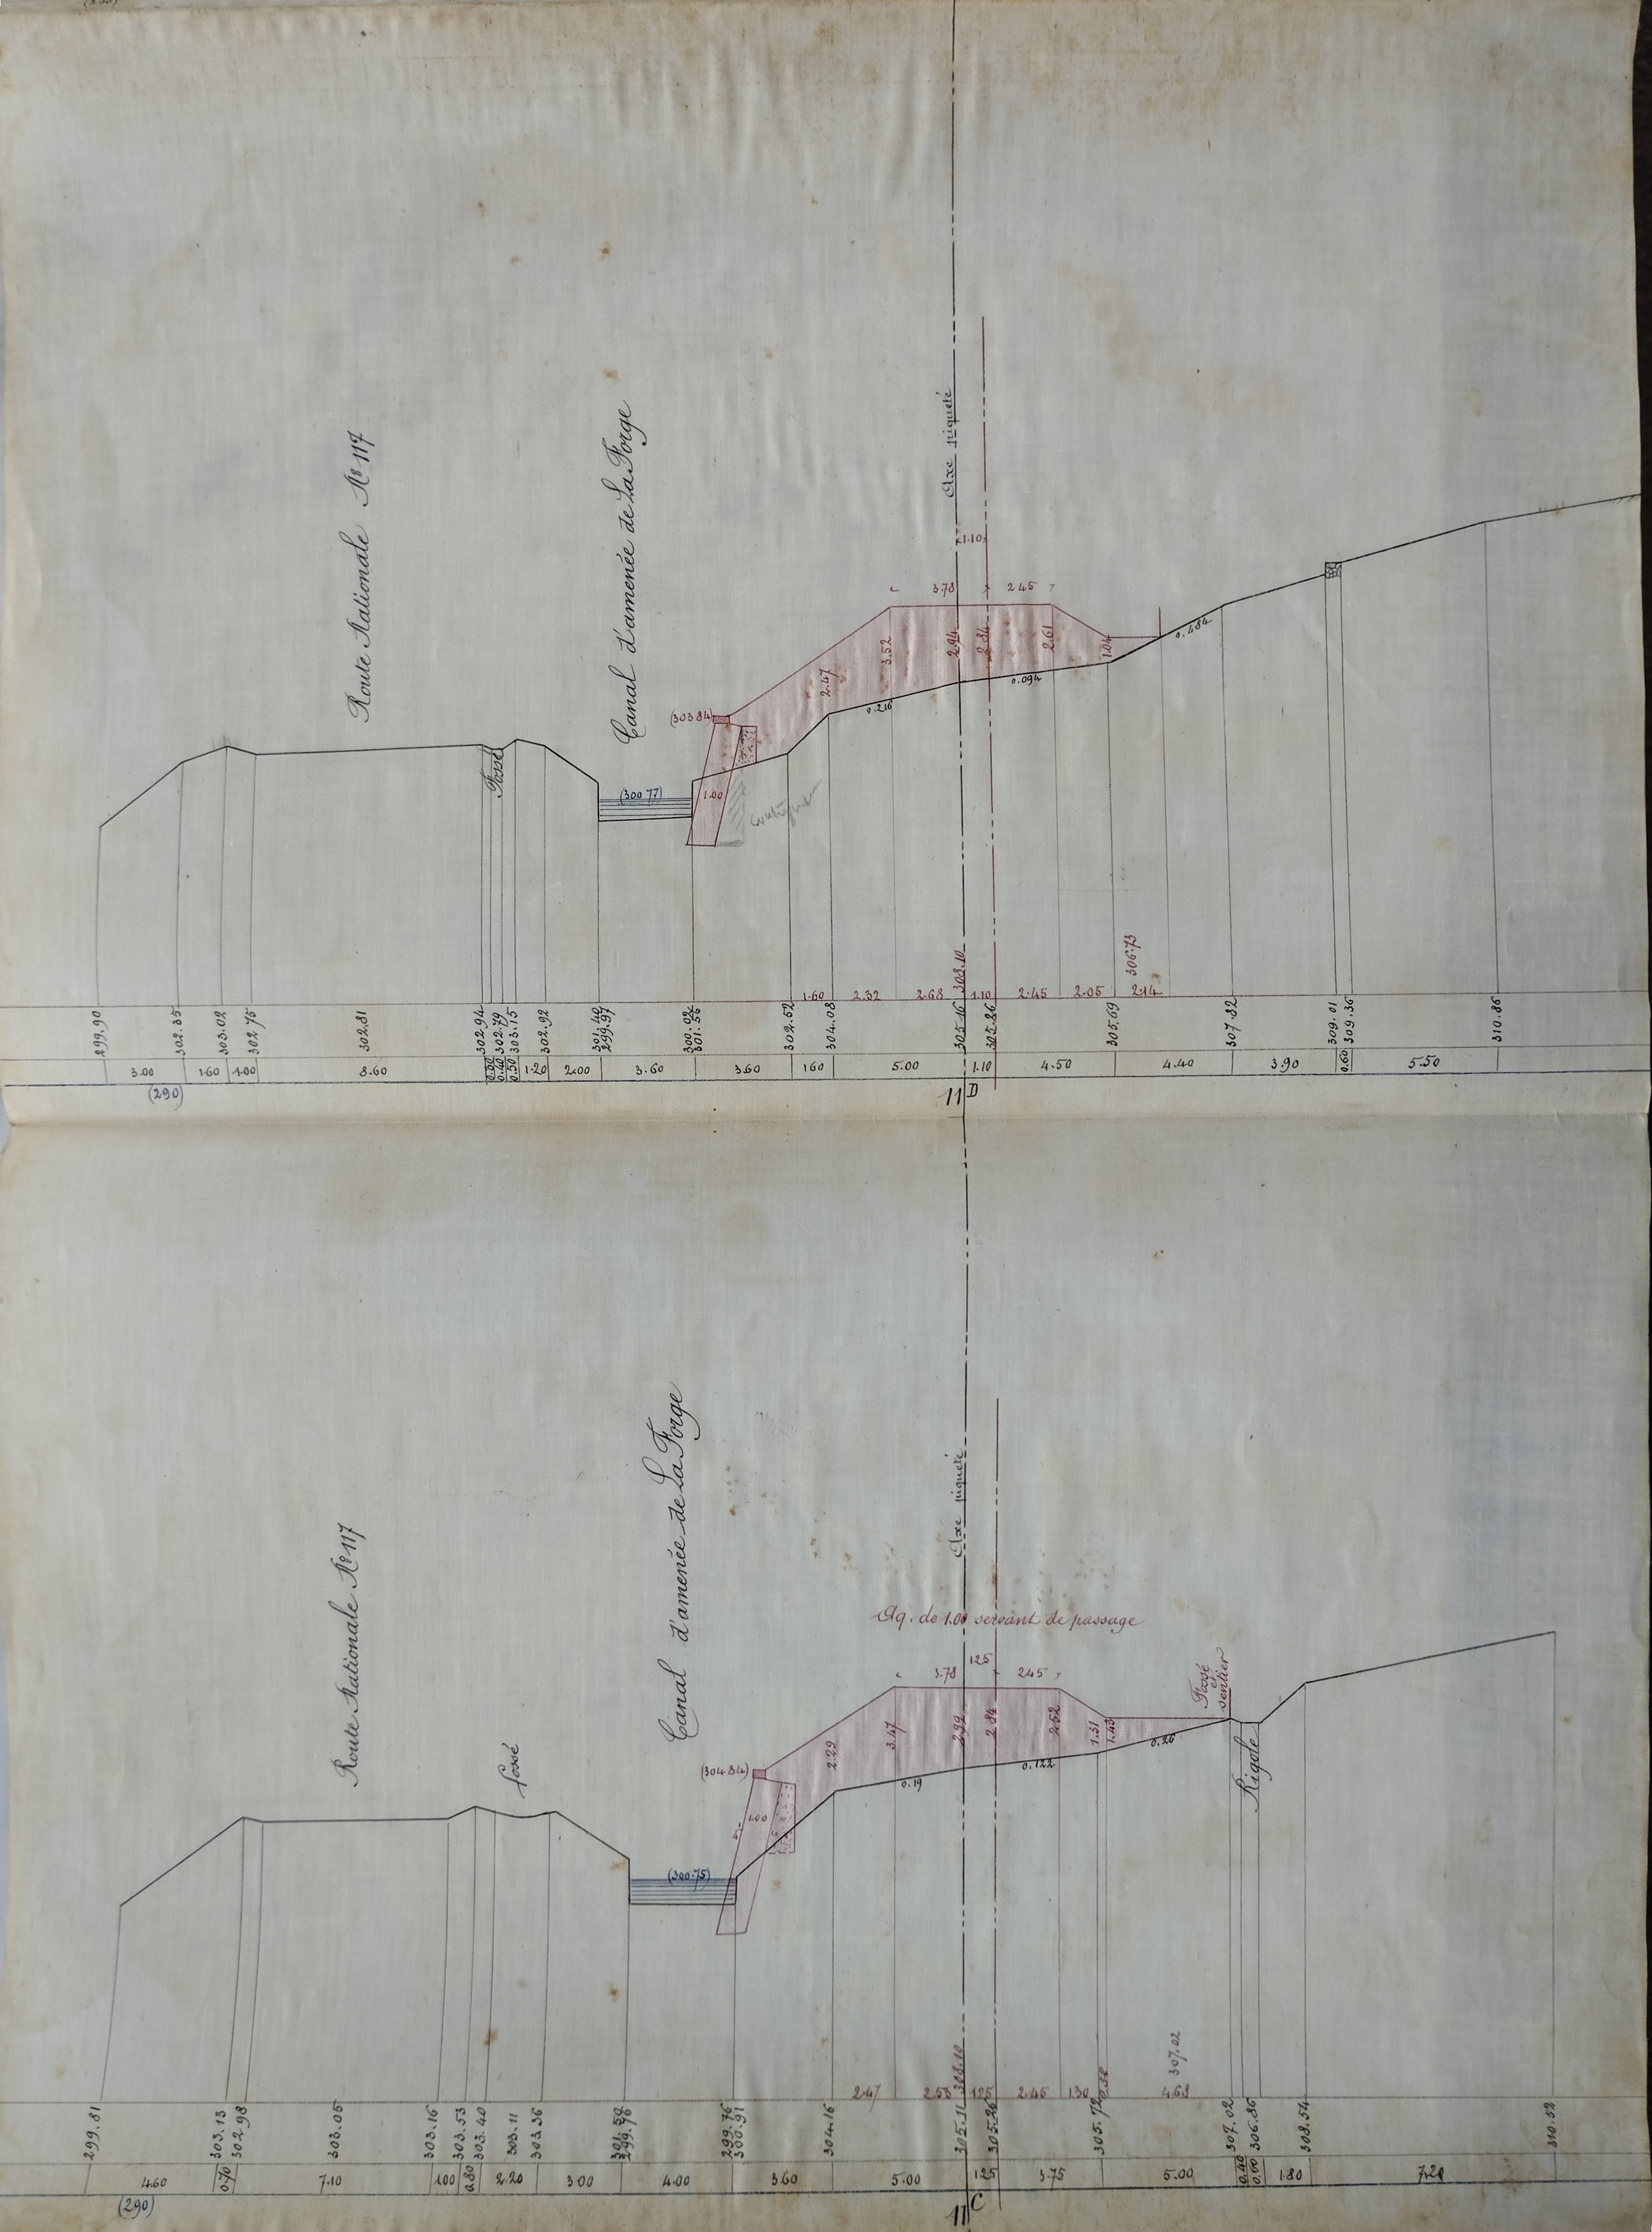 Route Nationale N° 117
Canal d'amenée de La Forge
Axe piqueté
1.10
3.78
2.45
Fossé
(300.77)
(303.84)
1.00
2.47
3.52
2.94
2.84
2.61
1.04
0.216
0.094
0.484
1.60
2.32
2.68
308.10
1.10
2.45
2.05
306.73
2.14
299.90
302.35
303.02
302.75
302.81
302.94
302.79
303.15
302.92
301.40
299.97
300.02
301.56
302.52
304.08
305.16
305.26
305.69
307.82
309.01
309.36
310.86
3.00
1.60
1.00
8.60
0.30
0.40
0.50
1.20
2.00
3.60
3.60
1.60
5.00
1.10
4.50
4.40
3.90
0.60
5.50
(290)
11 D
Route Nationale N° 117
fossé
Canal d'amenée de La Forge
Axe piqueté
Aq. de 1.00 servant de passage
1.25
3.78
2.45
Fossé
et
sentier
Rigole
(300.75)
(304.84)
1.00
2.29
3.47
2.99
2.84
2.52
1.51
1.43
0.19
0.122
0.26
2.47
2.53
308.10
1.25
2.45
1.30
307.02
4.62
299.81
303.13
302.98
303.05
303.16
303.53
303.40
303.11
303.36
301.50
299.76
299.76
300.91
304.16
305.11
305.26
305.72
307.02
306.86
308.54
310.52
4.60
0.70
7.10
1.00
0.80
2.20
3.00
4.00
3.60
5.00
1.25
3.75
5.00
0.40
0.60
1.80
7.20
(290)
11 C